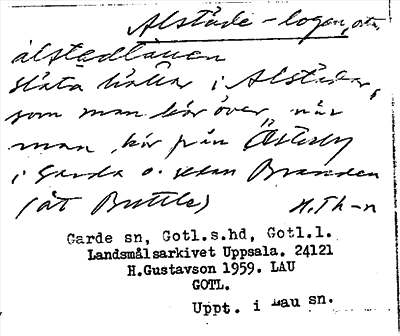 Alståde-logen, ota
alstedtauen
släta hällar i Alstädar,
som man kör över, när
man kör från Österby
i Garda o. sedan Branden
(åt Buttle) H.Th-n
Garde sn, Gotl.s.hd, Gotl.l.
Landsmålsarkivet Uppsala. 24121
H.Gustavson 1959. LAU
GOTL.
Uppt. i Lau sn.